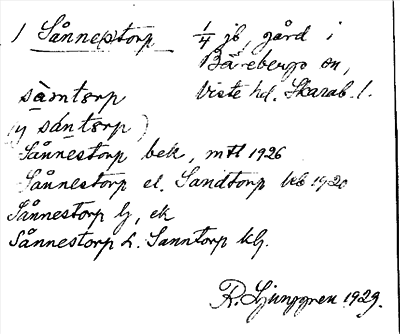 1 Sånne(s)torp 1/4 jb, gård i
Barebergs sn,
Viste hd. Skarab. l.
sàmtɵrp
(y sántɵrp)
Sånnestorp bek, mtl 1926
Sånnestorp el. Sandtorp kb 1920
Sånnestorp lj, ek
Sånnestorp l. Sanntorp klj.
R. Ljunggren 1929.